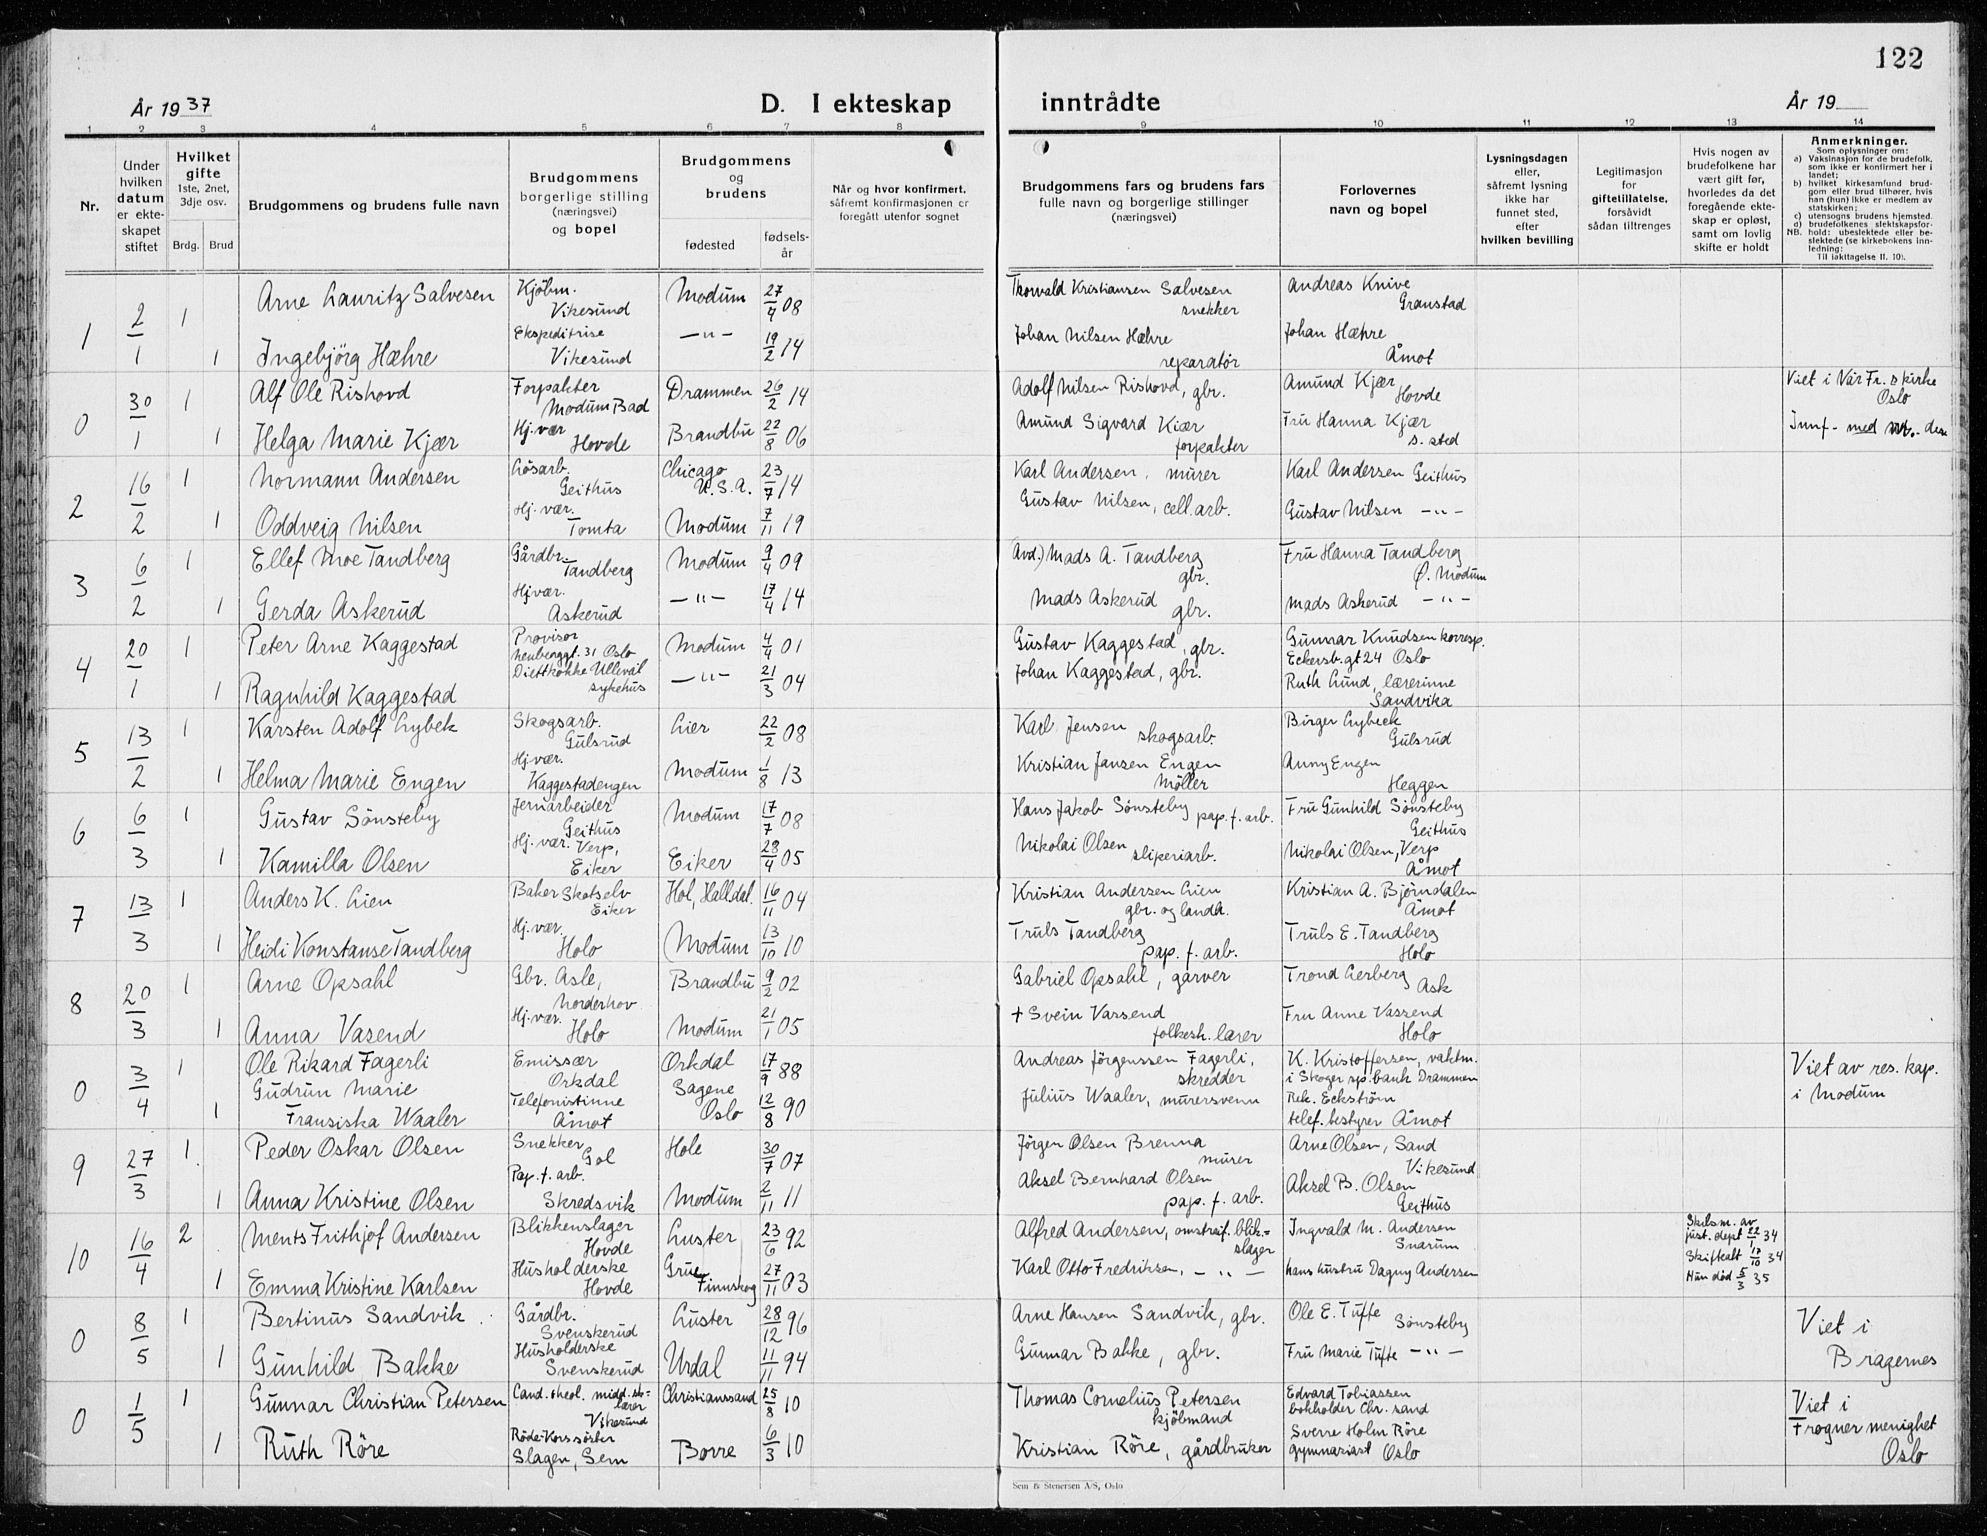 122
År 1937
D. I ekteskap inntrådte
År 19
1 2 3 4 5 6 7 8 9 10 11 12 13 14
Nr.
Under hvilken datum er ekteskapet stiftet
Hvilket gifte
1ste, 2net, 3dje osv.
Brdg. Brud
Brudgommens og brudens fulle navn
Brudgommens borgerlige stilling (næringsvei) og bopel
Brudgommens og brudens
fødested
fødselsår
Når og hvor konfirmert, såfremt konfirmasjonen er foregått utenfor sognet
Brudgommens fars og brudens fars fulle navn og borgerlige stillinger (næringsvei)
Forlovernes navn og bopel
Lysningsdagen eller, såfremt lysning ikke har funnet sted, efter hvilken bevilling
Legitimasjon for giftetillatelse, forsåvidt sådan tiltrenges
Hvis nogen av brudefolkene har vært gift før, hvorledes da det foregående ekteskap er opløst, samt om lovlig skifte er holdt
Anmerkninger.
Som oplysninger om:
a) Vaksinasjon for de brudefolk, som ikke er konfirmert her i landet;
b) hvilket kirkesamfund brudgom eller brud tilhører, hvis han (hun) ikke er medlem av statskirken;
c) utensogns brudens hjemsted.
d) brudefolkenes slektskapsforhold: ubeslektede eller beslektede (se kirkebokens innledning:
NB. Til iakttagelse II. 10).
1 2/1 1 Arne Lauritz Salvesen Kjøbm. Vikesund Modum 27/4 08 Thorvald Kristiansen Salvesen snekker Andreas Knive Granstad
1 Ingebjörg Hæhre Ekspeditrise Vikesund —"— 19/2 14 Johan Nilsen Hæhre reparatør Johan Hæhre Åmot
0 30/1 1 Alf Ole Rishovd Forpakter Modum Bad Drammen 26/2 14 Adolf Nilsen Rishovd, gbr. Amund Kjær Hovde Viet i Vår Fr.s kirke Oslo
1 Helga Marie Kjær Hj.vær Hovde Brandbu 22/8 06 Amund Sigvard Kiær forpakter Fru Hanna Kjær s. sted Innf- med
2 16/2 1 Normann Andersen Løsarb. Geithus Chicago U.S.A. 23/7 14 Karl Andersen, murer Karl Andersen Geithus
1 Oddveig Nilsen Hj.vær. Tomta Modum 7/11 19 Gustav Nilsen, cell.arb. Gustav Nilsen —"—
3 6/2 1 Ellef Moe Tandberg Gårdbr. Tandberg Modum 9/4 09 Avd.) Mads A. Tandberg gbr. Fru Hanna Tandberg Ø. Modum
1 Gerda Askerud Hjvær. Askerud —"— 17/4 14 Mads Askerud gbr. Mads Askerud —"—
4 20/1 1 Peter Arne Kaggestad Provisor Neuberggt. 31 Oslo Modum 4/4 01 Gustav Kaggestad, gbr. Gunnar Knudsen korresp. Eckersb.gt 24 Oslo
1 Ragnhild Kaggestad Diettkokke Ullevål sykehus —"— 21/3 04 Johan Kaggestad, gbr. Ruth Lund, lærerinne Sandvika
5 13/2 1 Karsten Adolf Lybek Skogsarb. Gulsrud Lier 22/2 08 Karl Jensen skogsarb. Birger Lybeck Gulsrud
1 Helma Marie Engen Hj.vær. Kaggestadengen Modum 1/8 13 Kristian Jansen Engen Møller Anny Engen Heggen
6 6/3 1 Gustav Sønsteby Jernarbeider Geithus Modum 17/7 08 Hans Jakob Sønsteby pap.f.arb. Fru Gunhild Sønsteby Geithus
1 Kamilla Olsen Hj.vær. Verp, Eiker Eiker 28/4 05 Nikolai Olsen sliperiarb. Nikolai Olsen, Verp Åmot
7 13/3 1 Anders K. Lien Baker Skotselv Eiker Hol, Halldal. 16/11 04 Kristian Andersen Lien gbr. og landh. Kristian A. Bjørndalen Åmot
1 Heidi Konstanse Tandberg Hj.vær. Holo Modum 13/10 10 Truls Tandberg pap.f.arb. Truls E. Tandberg Holo
8 20/3 1 Arne Opsahl Gbr. Asle, Norderhov Brandbu 9/2 02 Gabriel Opsahl, garver Trond Lerberg Ask
1 Anna Vasend Hj.vær. Holo Modum 21/1 05 + Svein Varsend folkesh.lærer Fru Anne Vassend Holo
0 3/4 1 Ole Rikard Fagerli Emissær Orkdal Orkdal 17/9 88 Andreas Jörgenssen Fagerli, skredder K. Kristoffersen, vaktm. i Skoger sp.bank Drammen Viet av res.kap. i Modum
1 Gudrun Marie Fransiska Waaler Telefonistinne Åmot Sagene Oslo 12/8 90 Julius Waaler, murersvenn Rik. Eckstrøm telef.bestyrer Åmot
9 27/3 1 Peder Oskar Olsen Snekker Gol Hole 30/7 07 Jörgen Olsen Brenna murer Arne Olsen, Sand Vikesund
1 Anna Kristine Olsen Pap.f.arb. Skredsvik Modum 2/11 11 Aksel Bernhard Olsen pap.f.arb. Aksel B. Olsen Geithus
10 16/4 2 Ments Frithjof Andersen Blikkenslager Hovde Luster 23/6 92 Alfred Andersen, omstreif. blikslager Ingvald M. Andersen Snarum Skilsm. av just.dept 22/1 34 Skiftealt 17/10 34 Hun død 5/3 35
1 Emma Kristine Karlsen Husholderske Hovde Grue Finnskog 27/11 03 Karl Otto Fredriksen, —"— hans hustru Dagny Andersen
0 8/5 1 Bertinus Sandvik Gårdbr. Svenskerud Luster 28/12 96 Arne Hansen Sandvik, gbr. Ole E. Tufte Sønsteby Viet i Bragernes
1 Gunhild Bakke Husholderske Svenskerud Urdal 11/11 94 Gunnar Bakke, gbr. Fru Marie Tufte —"—
0 1/5 1 Gunnar Christian Petersen Cand. theol. midd.sk=lærer Vikesund Christianssand 25/8 10 Thomas Cornelius Petersen kjöbmand Edvard Tobiassen bokholder Chr.sand Viet i Frogner menighet Oslo
1 Ruth Röre Röde-Korssöster Slagen, Sem Borre 6/3 10 Kristian Röre, gårdbruker Sverre Holm Röre gymnasiast Oslo
Sem & Stenersen A/S, Oslo